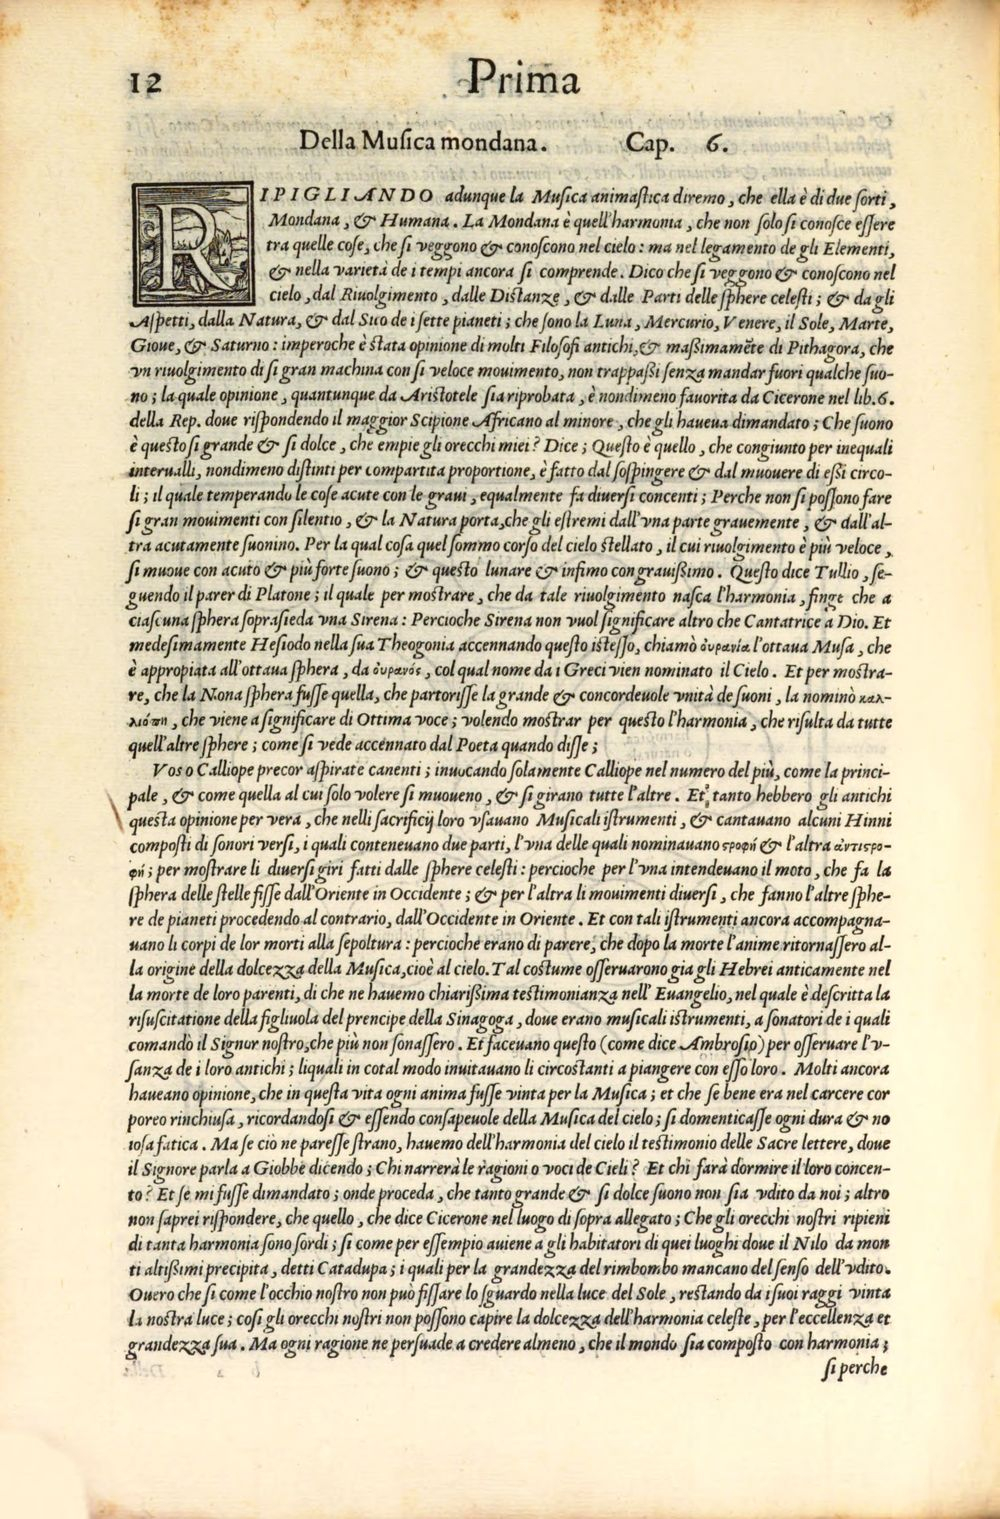 12 Prima
Della Muſica mondana. Cap. 6.
RIPIGLIANDO adunque la Muſica animaſtica diremo, che ella è di due ſorti,
Mondana, & Humana. La Mondana è quell'harmonia, che non ſolo ſi conoſce eſſere
tra quelle coſe, che ſi veggono & conoſcono nel cielo: ma nel legamento de gli Elementi,
& nella varietà de i tempi ancora ſi comprende. Dico che ſi veggono & conoſcono nel
cielo, dal Riuolgimento, dalle Diſtanze, & dalle Parti delle ſphere celeſti; & da gli
Aſpetti, dalla Natura, & dal Sito de i ſette pianeti; che ſono la Luna, Mercurio, Venere, il Sole, Marte,
Gioue, & Saturno: imperoche è ſtata opinione di molti Filoſofi antichi, & maßimamẽte di Pithagora, che
vn riuolgimento di ſi gran machina con ſi veloce mouimento, non trappaßi ſenza mandar fuori qualche ſuo-
no; la quale opinione, quantunque da Ariſtotele ſia riprobata, è nondimeno fauorita da Cicerone nel lib. 6.
della Rep. doue riſpondendo il maggior Scipione Africano al minore, che gli haueua dimandato; Che ſuono
è queſto ſi grande & ſi dolce, che empie gli orecchi miei? Dice; Queſto è quello, che congiunto per inequali
interualli, nondimeno diſtinti per compartita proportione, è fatto dal ſoſpingere & dal muouere di eßi circo-
li; il quale temperando le coſe acute con le graui, equalmente fa diuerſi concenti; Perche non ſi poſſono fare
ſi gran mouimenti con ſilentio, & la Natura porta, che gli eſtremi dall'vna parte grauemente, & dall'al-
tra acutamente ſuonino. Per la qual coſa quel ſommo corſo del cielo ſtellato, il cui riuolgimento è più veloce,
ſi muoue con acuto & più forte ſuono; & queſto lunare & infimo con grauißimo. Queſto dice Tullio, ſe-
guendo il parer di Platone; il quale per moſtrare, che da tale riuolgimento naſca l'harmonia, finge che a
ciaſcuna ſphera ſopraſieda vna Sirena: Percioche Sirena non vuol ſignificare altro che Cantatrice a Dio. Et
medeſimamente Heſiodo nella ſua Theogonia accennando queſto iſteſſo, chiamò ὀυρανία l'ottaua Muſa, che
è appropiata all'ottaua ſphera, da ὀυρανὸς, col qual nome da i Greci vien nominato il Cielo. Et per moſtra-
re, che la Nona ſphera fuſſe quella, che partoriſſe la grande & concordeuole vnità de ſuoni, la nominò καλ-
λιόπη, che viene a ſignificare di Ottima voce; volendo moſtrar per queſto l'harmonia, che riſulta da tutte
quell'altre ſphere; come ſi vede accennato dal Poeta quando diſſe;
Vos o Calliope precor aſpirate canenti; inuocando ſolamente Calliope nel numero del più, come la princi-
pale, & come quella al cui ſolo volere ſi muoueno, & ſi girano tutte l'altre. Et tanto hebbero gli antichi
queſta opinione per vera, che nelli ſacrificij loro vſauano Muſicali iſtrumenti, & cantauano alcuni Hinni
compoſti di ſonori verſi, i quali conteneuano due parti, l'vna delle quali nominauano ςροφὴ & l'altra ἀντιςρο-
φὴ; per moſtrare li diuerſi giri fatti dalle ſphere celeſti: percioche per l'vna intendeuano il moto, che fa la
ſphera delle ſtelle fiſſe dall'Oriente in Occidente; & per l'altra li mouimenti diuerſi, che fanno l'altre ſphe-
re de pianeti procedendo al contrario, dall'Occidente in Oriente. Et con tali iſtrumenti ancora accompagna-
uano li corpi de lor morti alla ſepoltura: percioche erano di parere, che dopo la morte l'anime ritornaſſero al-
la origine della dolcezza della Muſica, cioè al cielo. Tal coſtume oſſeruarono gia gli Hebrei anticamente nel
la morte de loro parenti, di che ne hauemo chiarißima teſtimonianza nell'Euangelio, nel quale è deſcritta la
riſuſcitatione della figliuola del prencipe della Sinagoga, doue erano muſicali iſtrumenti, a ſonatori de i quali
comandò il Signor noſtro, che più non ſonaſſero. Et faceuano queſto (come dice Ambroſio) per oſſeruare l'v-
ſanza de i loro antichi; liquali in cotal modo inuitauano li circoſtanti a piangere con eſſo loro. Molti ancora
haueano opinione, che in queſta vita ogni anima fuſſe vinta per la Muſica; et che ſe bene era nel carcere cor
poreo rinchiuſa, ricordandoſi & eſſendo conſapeuole della Muſica del cielo; ſi domenticaſſe ogni dura & no
ioſa fatica. Ma ſe ciò ne pareſſe ſtrano, hauemo dell'harmonia del cielo il teſtimonio delle Sacre lettere, doue
il Signore parla a Giobbe dicendo; Chi narrerà le ragioni o voci de Cieli? Et chi farà dormire il loro concen-
to? Et ſe mi fuſſe dimandato; onde proceda, che tanto grande & ſi dolce ſuono non ſia vdito da noi; altro
non ſaprei riſpondere, che quello, che dice Cicerone nel luogo di ſopra allegato; Che gli orecchi noſtri ripieni
di tanta harmonia ſono ſordi; ſi come per eſſempio auiene a gli habitatori di quei luoghi doue il Nilo da mon
ti altißimi precipita, detti Catadupa; i quali per la grandezza del rimbombo mancano del ſenſo dell'vdito.
Ouero che ſi come l'occhio noſtro non può fiſſare lo ſguardo nella luce del Sole, reſtando da i ſuoi raggi vinta
la noſtra luce; coſi gli orecchi noſtri non poſſono capire la dolcezza dell'harmonia celeſte, per l'eccellenza et
grandezza ſua. Ma ogni ragione ne perſuade a credere almeno, che il mondo ſia compoſto con harmonia;
ſi perche